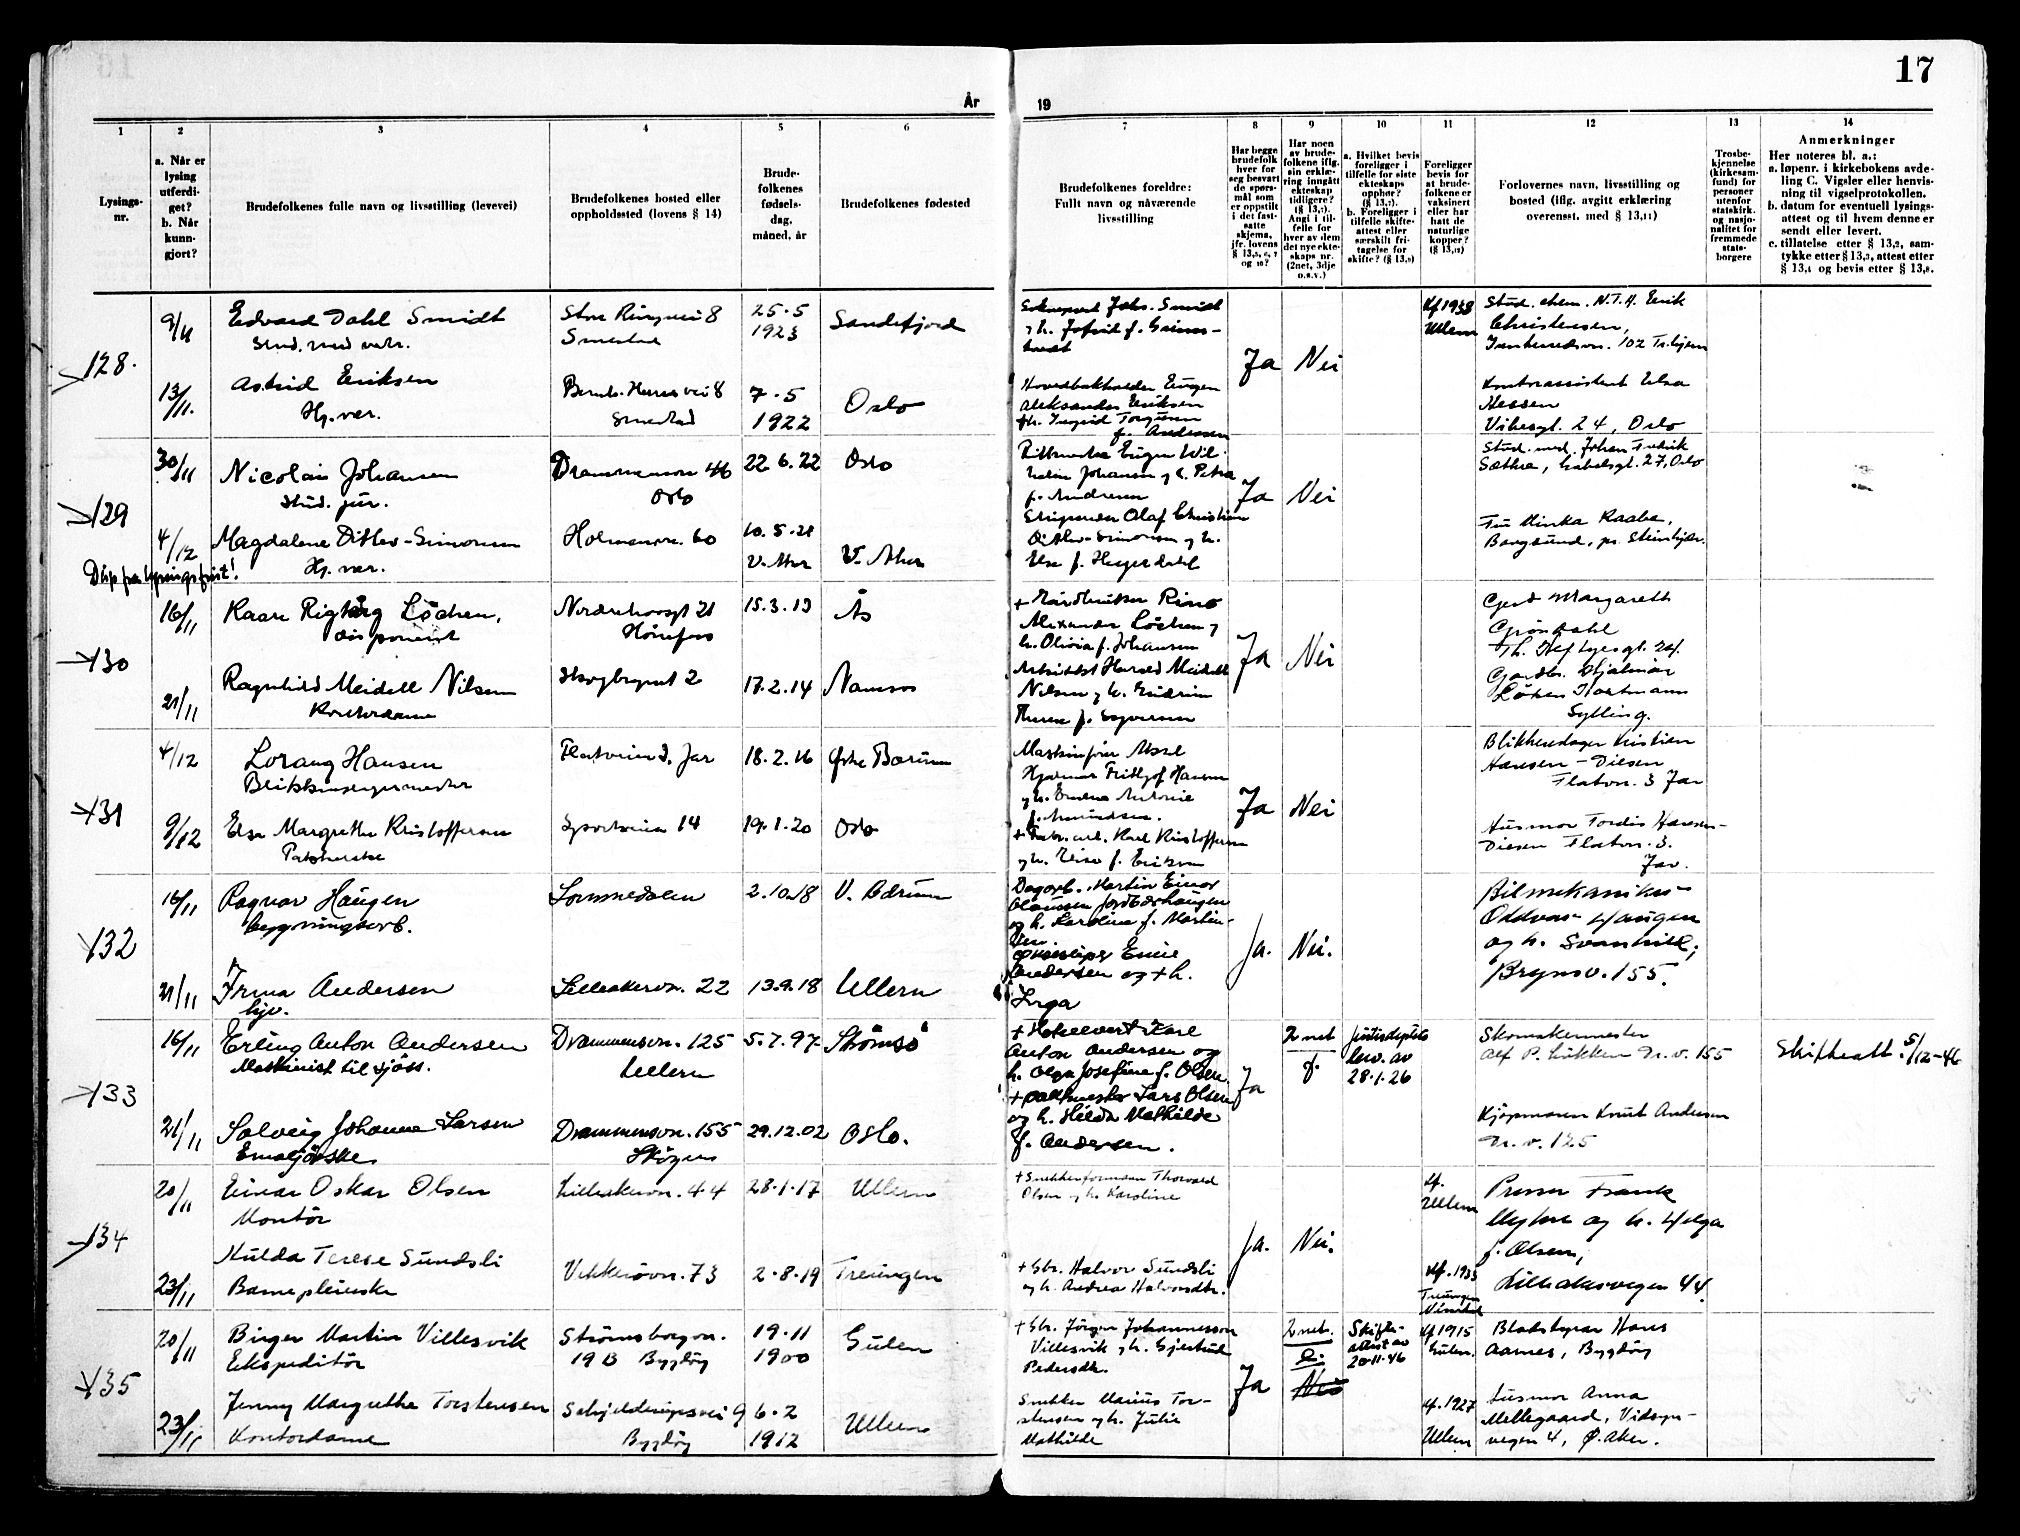 17
År
19
1
2
3
4
5
6
7
8
9
10
11
12
13
14
Lysings-
nr.
a. Når er
lysing
utferdi-
get?
b. Når
kunn-
gjort?
Brudefolkenes fulle navn og livsstilling (levevei)
Brudefolkenes bosted eller
oppholdssted (lovens § 14)
Brude-
folkenes
fødsels-
dag,
måned, år
Brudefolkenes fødested
Brudefolkenes foreldre:
Fullt navn og nåværende
livsstilling
Har begge
brudefolk
hver for
seg besvart
de spørs-
mål som
er oppstilt
i det fast-
satte
skjema,
jfr. lovens
§ 13,5, 6, 7
og 10?
Har noen
av brude-
folkene iflg.
sin erklæ-
ring inngått
ekteskap
tidligere?
(§ 13,7).
Angi i til-
felle for
hver av dem
det nye ekte-
skaps nr.
(2net, 3dje
o.s.v.)
a. Hvilket bevis
foreligger i
tilfelle for siste
ekteskaps
opphør?
(§ 13,7).
b. Foreligger i
tilfelle skifte-
attest eller
særskilt fri-
tagelse for
skifte? (§ 13,9)
Foreligger
bevis for
at brude-
folkene er
vaksinert
eller har
hatt de
naturlige
kopper?
(§ 13,12)
Forlovernes navn, livsstilling og
bosted (iflg. avgitt erklæring
overensst. med § 13,11)
Trosbe-
kjennelse
(kirkesam-
fund) for
personer
utenfor
statskirk.
og nasjo-
nalitet for
fremmede
stats-
borgere
Anmerkninger
Her noteres bl. a.:
a. løpenr. i kirkebokens avde-
ling C. Vigsler eller henvis-
ning til vigselprotokollen.
b. datum for eventuell lysings-
attest og til hvem denne er
sendt eller levert.
c. tillatelse etter § 13,2, sam-
tykke etter § 13,3, attest etter
§ 13,4 og bevis etter § 13,8.
128.
9/11
Edvard Dahl Smidt
stud. med. vetr.
Store Ringvei 8
Smestad
25.5
1923
Sandefjord
Johs. Smidt
Ja
Nei
Kf 1938
Ullern
Stud. chem. N.T.H. Erik
Christensen,
102 Tr.hjem
13/11.
Astrid Eriksen
Hj.vær.
Bernh. Herres vei 8
Smestad
7.5
1922
Oslo
Hovedbokholder Eugen
Aleksander Eriksen
f. Andersen
Kontorassistent Elsa
Hessen
Vibesgt. 24, Oslo
129
30/11
Nicolai Johansen
stud. jur.
Drammensvn 46
Oslo
22.6.22
Oslo
Eugen Wil-
helm Johansen og h. Petra
f. Andresen
Ja
Nei
Stud. med. Johan Fredrik
Sæthre, Gabelsgt. 27, Oslo
4/12
Magdalene Ditlev-Simonsen
Hj. vær.
Holmenvn. 60
10.5.21
V. Aker
V. Aker
Skipsreder Olaf Christian
Ditlev-Simonsen og h.
Else f. Heyerdahl
Fru Minka Raabe,
Borgsund, pr. Steinkjer.
Disp. fra lysingsfrist!
130
16/11
Kaare Rigberg Löchen,
disponent
Nordrehovsgt 21
Hönefoss
15.3.13
Ås
+ Gårdbruker Rino
Alexander Löchen og
h. Olivia f. Johansen
Ja
Nei
Gerd Margareth
Gröndahl
Th. Heftyesgt. 24.
21/11
Ragnhild Meidell Nilsen
Kontordame
Skogbrynet 2
17.2.14
Namsos
Arkitekt Harald Meidell
Nilsen og h.
Therese f. Syversen
Gårdbr. Hjalmar
Löken Hoelmann
Sylling.
131
4/12
Lorang Hansen
Blikkenslagermester
Flatveien 3, Jar
18.2.16
Østre Bærum
Maskinfører Aksel
Hjalmar Frithjof Hansen
og h. Emma Antonie
f. Amundsen.
Ja
Nei
Blikkenslager Kristian
Hansen-Diesen
Flatvn. 3 Jar
9/12
Else Margrethe Kristoffersen
Sportveien 14
19.1.20
Oslo
+ Fabr. arb. Karl Kristoffersen
og h. Elise f. Eriksen
Husmor Tordis Hansen-
Diesen Flatvn. 3.
Jar.
132
16/11
Ragnar Haugen
bygningsarb.
Lommedalen
2.10.18
V. Bærum
Dagarb. Martin Einar
Olaussen Jordbærhaugen
og h. Karoline f. Martin-
sen.
Ja.
Nei.
Bilmekaniker
Oddvar Haugen
og h. Svanhild,
Brynsv. 155.
21/11
Irma Andersen
hjv.
Lilleakervn. 22
13.9.18
Ullern
Emil
Andersen og + h.
Inga
133
16/11
Erling Anton Andersen
Maskinist til sjøss.
Drammensvn. 125
Ullern
5.7.97
Strömsö
+ Karl
Anton Andersen og
h. Olga Josefine f. Olsen.
Ja
2 net
f.
Justisdeptets
bev. av
28.1.26
Skomakermester
Alf P. Lökken Dr.v. 155
Skifteatt. 5/12-46
21/11
Solveig Johanne Larsen
Emaljörske
Drammensvn. 155
Sköyen
29.12.02
Oslo.
+ Lars Olsen
og h. Hilda Mathilde
f. Andersen.
Kjøpmann Knut Andersen
Dr. v. 125
134
20/11
Einar Oskar Olsen
Montör
Lilleakervn. 44
28.1.17
Ullern
+ Snekkerformann Thorvald
Olsen og h. Karoline
Ja.
Nei.
kf.
Ullern
Presser Frank
Myhre og h. Helga
f. Olsen,
Lilleakervegen 44.
23/11
Hulda Terese Sundsli
Barnepleierske
Vækkerövn. 73
2.8.19
Treungen
+ Gbr. Halvor Sundsli
og h. Andrea Halvorsdtr.
kf. 1933
Treungen
Nissedal
135
20/11
Birger Martin Villesvik
Ekspeditör
Strömsborgvn.
19 B Bygdöy
19.11
1900
Gulen
+ Gbr. Jörgen Johannesson
Villesvik og h. Gjertrud
Pedersdtr.
Ja
2 net.
e.
Nei
Skifte-
attest av
20-11-46
kf 1915
Gulen.
Bladstyrar Hans
Aarnes, Bygdöy
23/11
Jenny Margrethe Torstensen
Kontordame
Schjelderupsvei 9
Bygdöy
6.2
1912
Ullern
Snekker Marius Tor-
stensen og h. Julie
Mathilde
kf. 1927
Ullern
Husmor Anna
Mellegaard, Vidsyn-
vegen 4, Ø. Aker.